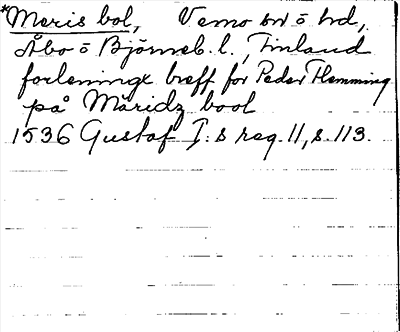 *Meris bol, Vemo sn o hd,
Åbo o Björneb. l., Finland
forleninge breff for Peder Flemming
på Märidz bool
1536 Gustaf I:s reg. 11, s. 113.